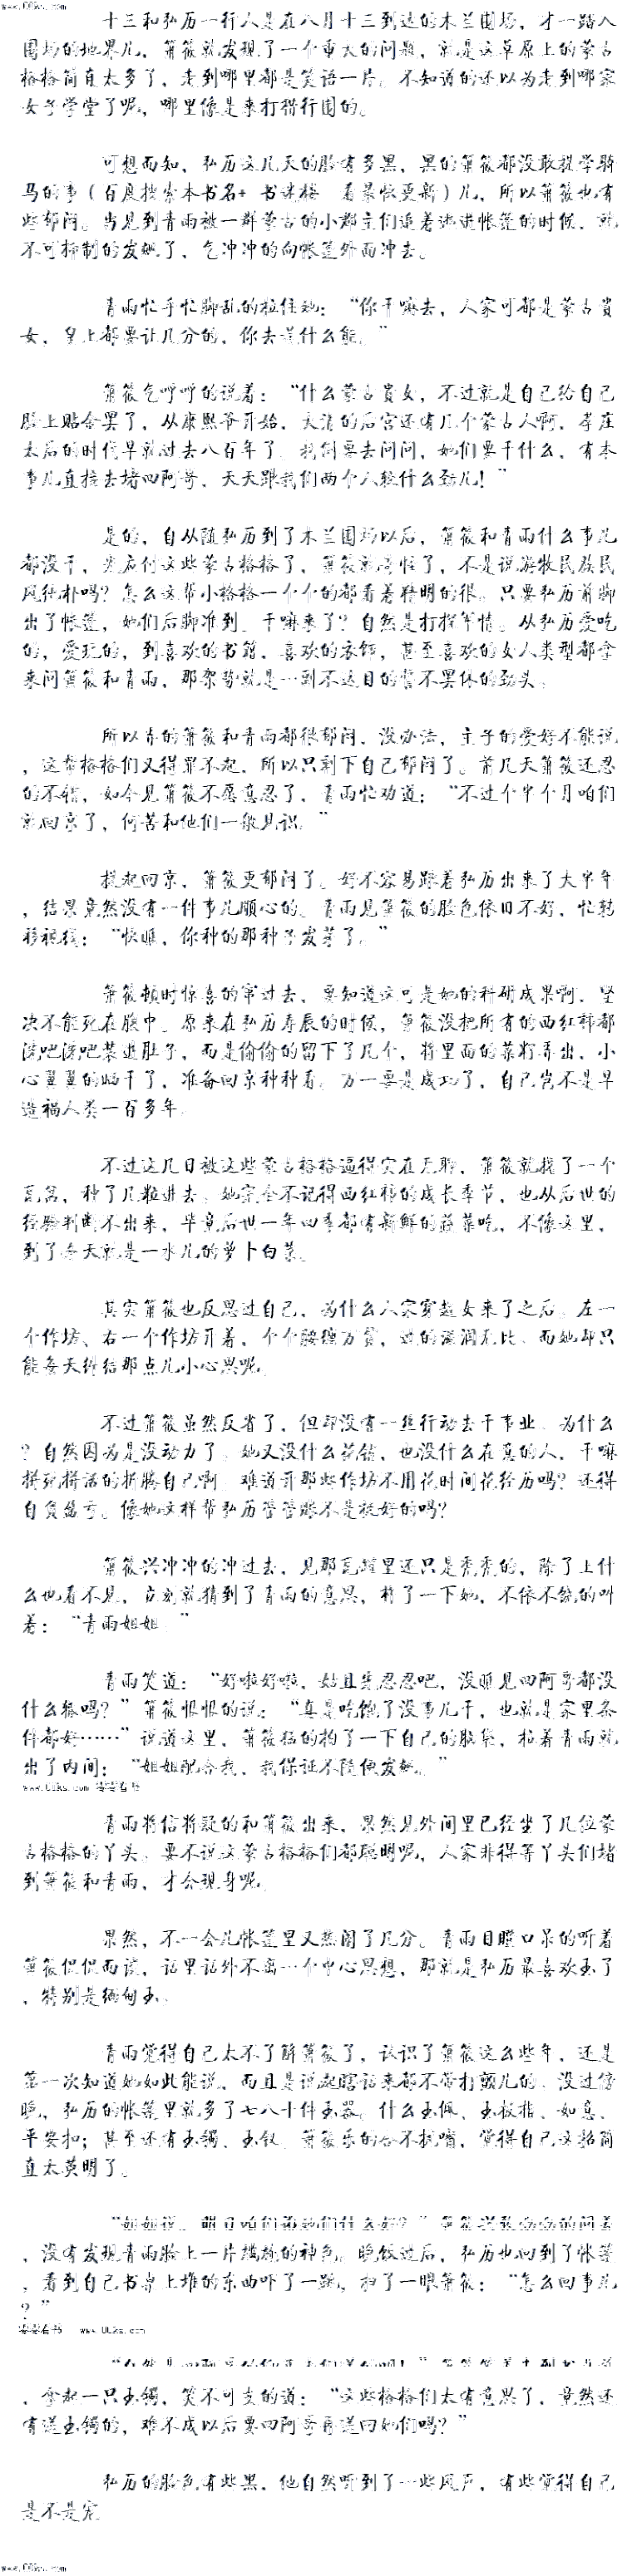 www.UUks.com
十三和弘历一行人是在八月十三到达的木兰围场，才一踏入
围场的地界儿，萧筱就发现了一个重大的问题，就是这草原上的蒙古
格格简直太多了，走到哪里都是笑语一片。不知道的还以为走到哪家
女子学堂了呢，哪里像是来打猎行围的。
可想而知，弘历这几天的脸有多黑，黑的萧筱都没敢提学骑
马的事（百度搜索本书名+ 书迷楼 看最快更新）儿，所以萧筱也有
些郁闷。当见到青雨被一群蒙古的小郡主们追着逃进帐篷的时候，就
不可抑制的发飙了，气冲冲的向帐篷外面冲去。
青雨忙手忙脚乱的拉住她：“你干嘛去，人家可都是蒙古贵
女，皇上都要让几分的，你去逞什么能。”
萧筱气呼呼的说着：“什么蒙古贵女，不过就是自己给自己
脸上贴金罢了，从康熙爷开始，大清的后宫还有几个蒙古人啊，孝庄
太后的时代早就过去八百年了。我倒要去问问，她们要干什么，有本
事儿直接去堵四阿哥，天天跟我们两个人较什么劲儿！”
是的，自从随弘历到了木兰围场以后，萧筱和青雨什么事儿
都没干，光应付这些蒙古格格了，萧筱就奇怪了，不是说游牧民族民
风纯朴吗？怎么这帮小格格一个个的都看着精明的很。只要弘历前脚
出了帐篷，她们后脚准到。干嘛来了？自然是打探军情。从弘历爱吃
的，爱玩的，到喜欢的书籍，喜欢的衣饰，甚至喜欢的女人类型都拿
来问萧筱和青雨，那架势就是一到不达目的誓不罢休的劲头。
所以弄的萧筱和青雨都很郁闷，没办法，主子的爱好不能说
，这帮格格们又得罪不起，所以只剩下自己郁闷了。前几天萧筱还忍
的不错，如今见萧筱不愿意忍了，青雨忙劝道：“不过个半个月咱们
就回京了，何苦和他们一般见识。”
提起回京，萧筱更郁闷了。好不容易跟着弘历出来了大半年
，结果竟然没有一件事儿顺心的。青雨见萧筱的脸色依旧不好，忙转
移视线：“快瞧，你种的那种子发芽了。”
萧筱顿时惊喜的窜过去，要知道这可是她的科研成果啊，坚
决不能死在腹中。原来在弘历寿辰的时候，萧筱没把所有的西红柿都
洗吧洗吧装进肚子，而是偷偷的留下了几个，将里面的菜籽弄出，小
心翼翼的晒干了，准备回京种种看。万一要是成功了，自己岂不是早
造福人类一百多年。
不过这几日被这些蒙古格格逼得实在无聊，萧筱就找了一个
瓦罐，种了几粒进去。她完全不记得西红柿的成长季节，也从后世的
经验判断不出来，毕竟后世一年四季都有新鲜的蔬菜吃，不像这里，
到了冬天就是一水儿的萝卜白菜。
其实萧筱也反思过自己，为什么人家穿越女来了之后，左一
个作坊、右一个作坊开着，个个腰缠万贯，过的滋润无比，而她却只
能每天纠结那点儿小心思呢。
不过萧筱虽然反省了，但却没有一丝行动去干事业。为什么
？自然因为是没动力了。她又没什么花销，也没什么在意的人，干嘛
拼死拼活的折腾自己啊。难道开那些作坊不用花时间花经历吗？还得
自负盈亏。像她这样帮弘历管管账不是挺好的吗？
萧筱兴冲冲的冲过去，见那瓦罐里还只是秃秃的，除了土什
么也看不见，立刻就猜到了青雨的意思，推了一下她，不依不饶的叫
着：“青雨姐姐。”
青雨笑道：“好啦好啦，姑且先忍忍吧，没瞧见四阿哥都没
什么辙吗？”萧筱恨恨的说：“真是吃饱了没事儿干，也就是家里条
件都好……”说道这里，萧筱猛的拍了一下自己的脑袋，拉着青雨就
出了内间：“姐姐配合我，我保证不随便发飙。”
www.UUks.com
青雨将信将疑的和萧筱出来，果然见外间里已经坐了几位蒙
古格格的丫头。要不说这蒙古格格们都聪明呢，人家非得等丫头们堵
到萧筱和青雨，才会现身呢。
果然，不一会儿帐篷里又热闹了几分。青雨目瞪口呆的听着
萧筱侃侃而谈，话里话外不离一个中心思想，那就是弘历最喜欢玉了
，特别是缅甸玉。
青雨觉得自己太不了解萧筱了，认识了萧筱这么些年，还是
第一次知道她如此能说，而且是说起瞎话来都不带打颤儿的。没过傍
晚，弘历的帐篷里就多了七八十件玉器。什么玉佩、玉板指、如意、
平安扣；甚至还有玉镯、玉钗。萧筱乐的合不拢嘴，觉得自己这招简
直太英明了。
，没有发现青雨脸上一片尴尬的神色。晚饭过后，弘历也回到了帐篷
，看到自己书桌上堆的东西吓了一跳，扫了一眼萧筱：“怎么回事儿
？”
www.UUks.com
，拿起一只玉镯，笑不可支的道：“这些格格们太有意思了，竟然还
有送玉镯的，难不成以后要四阿哥再送回她们吗？”
弘历的脸色有些黑，他自然听到了一些风声，有些觉得自己
是不是宠
www.UUks.com